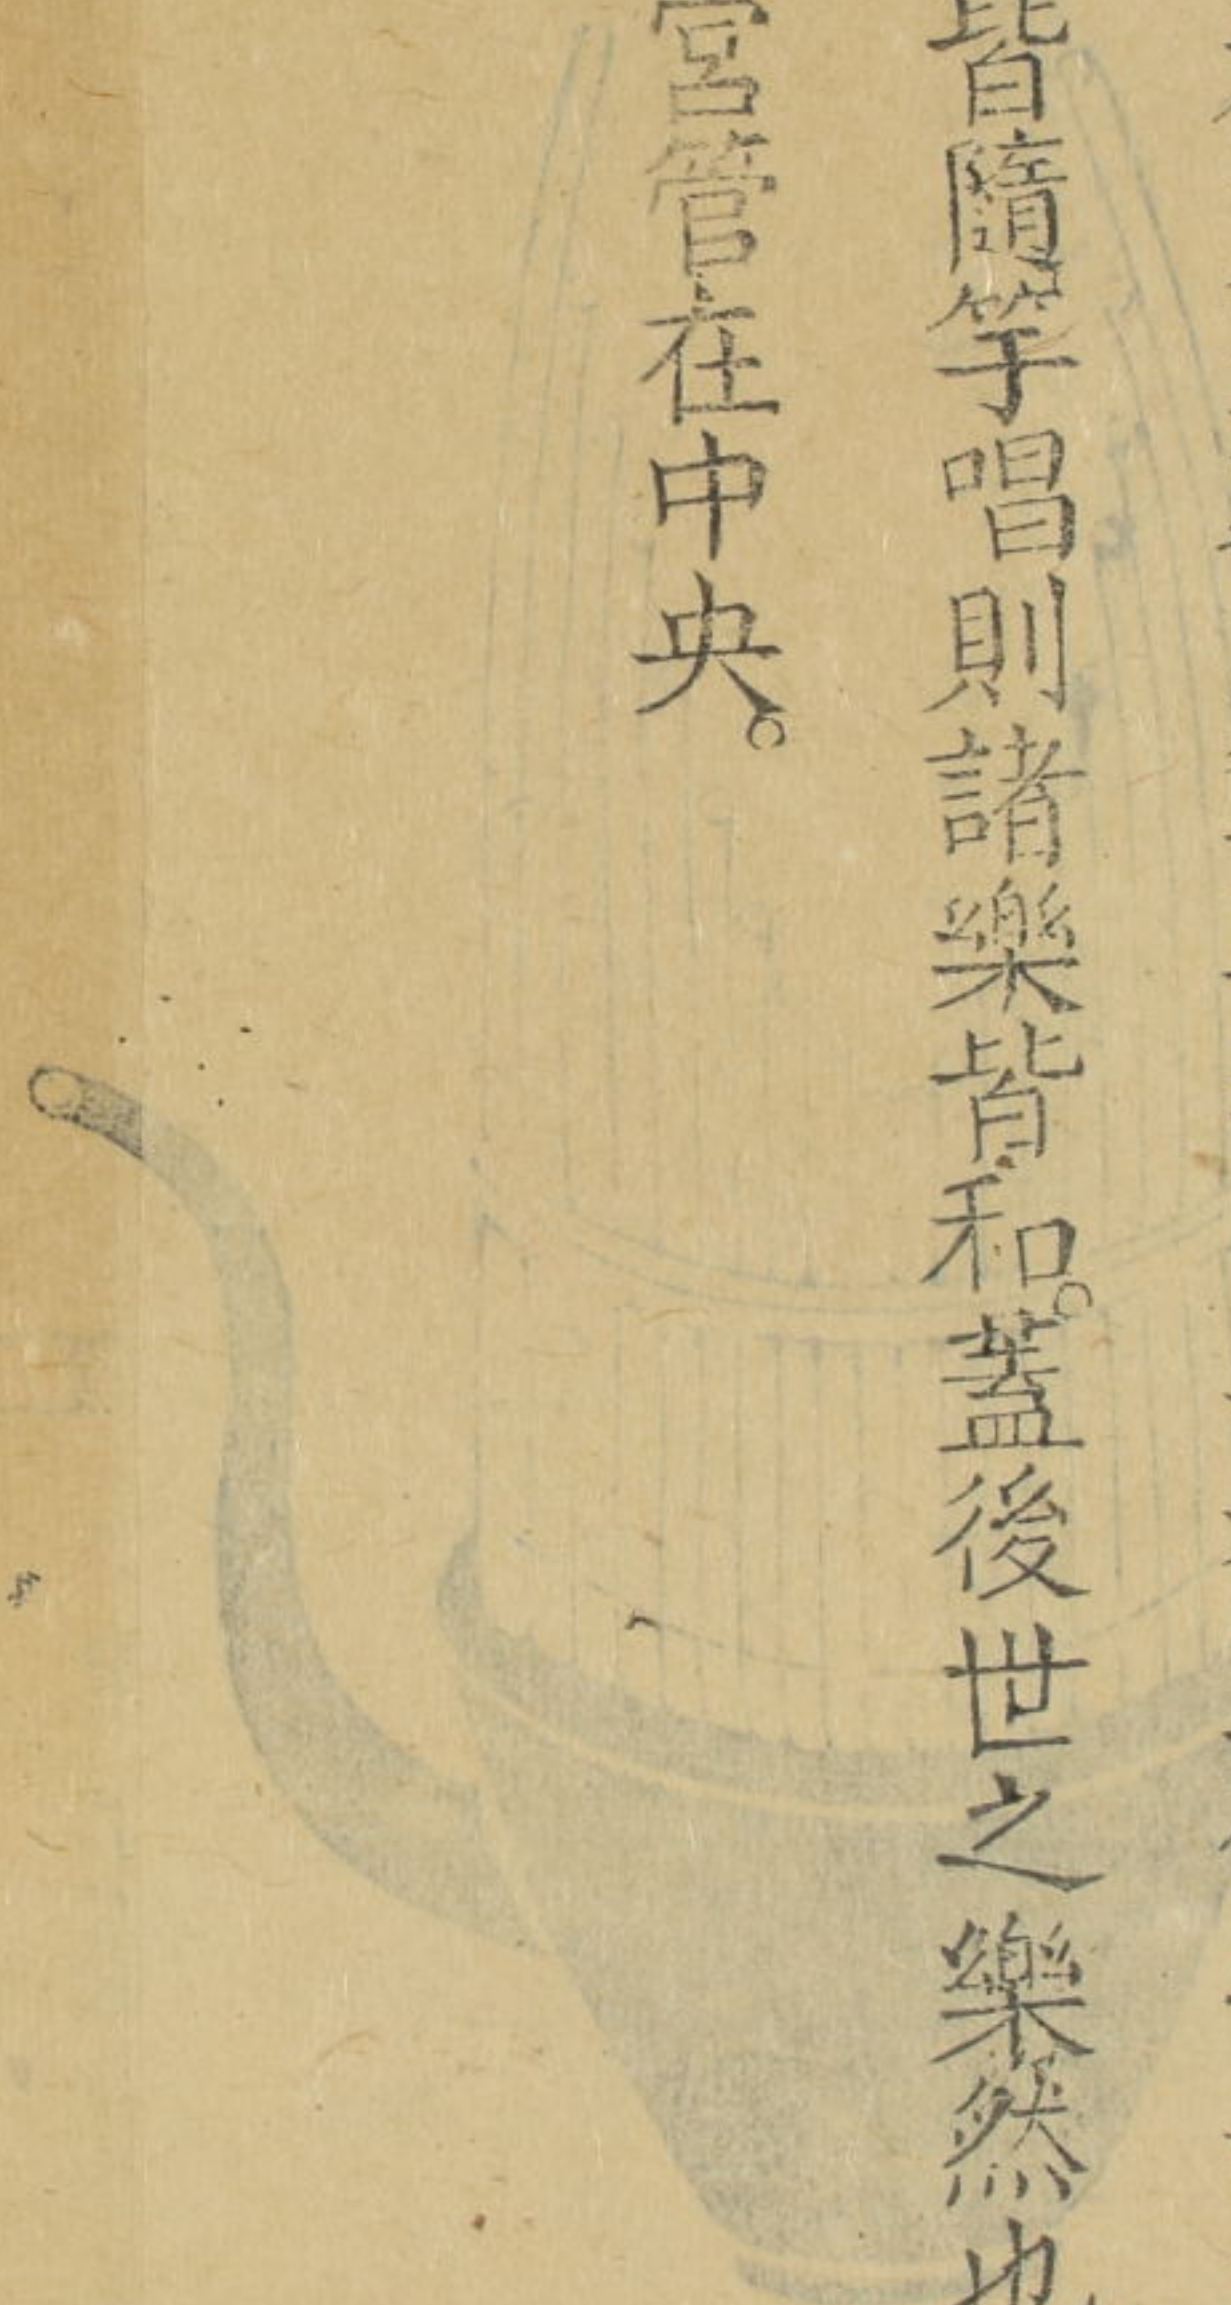 皆隨竽唱則諸樂皆和。蓋後世之樂然也
宮管在中央。